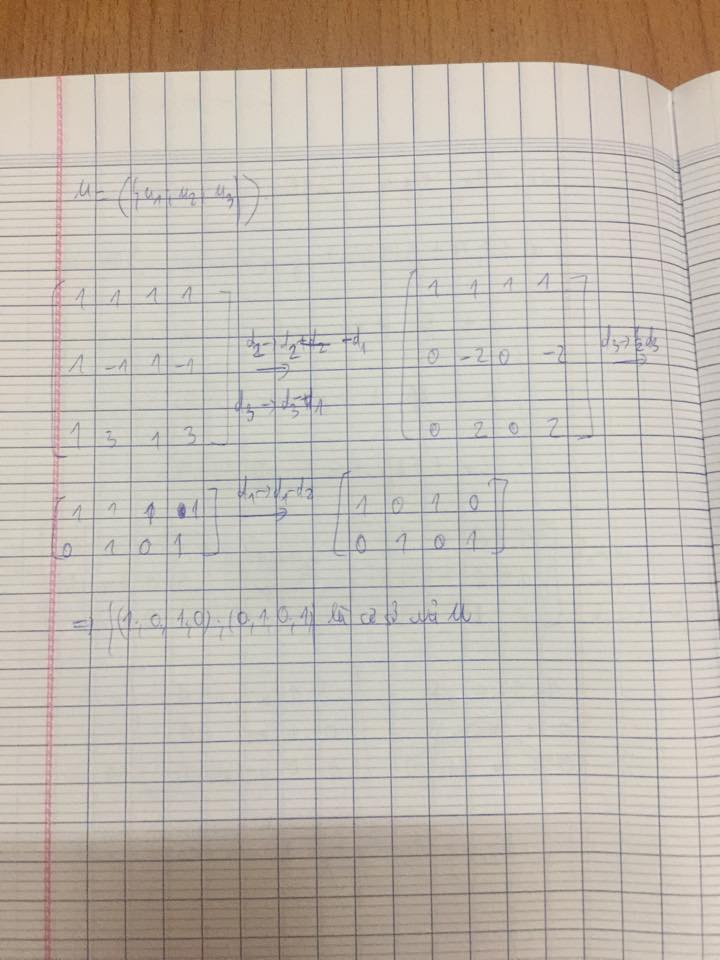 U = ({u₁, u₂, u₃})
1 1 1 1
1 -1 1 -1
1 3 1 3
d₂→d₂ -d₁
d₃→d₃-d₁
1 1 1 1
0 -2 0 -2
0 2 0 2
1 1 1 1
0 1 0 1
d₁→d₁-d₂
1 0 1 0
0 1 0 1
=> {(1, 0, 1, 0); (0, 1, 0, 1) là cơ U